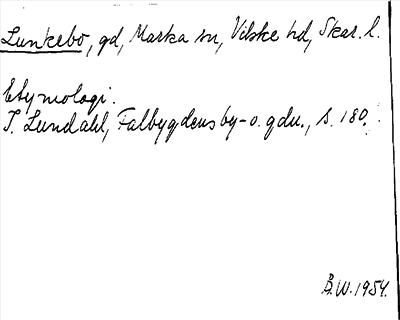 Lunkebo, gd, Marka sn, Vilske hd, Skar. l.
Etymologi.
I. Lundahl, Falbygdens by- o. gdn., s. 180.
Å.W. 1954.